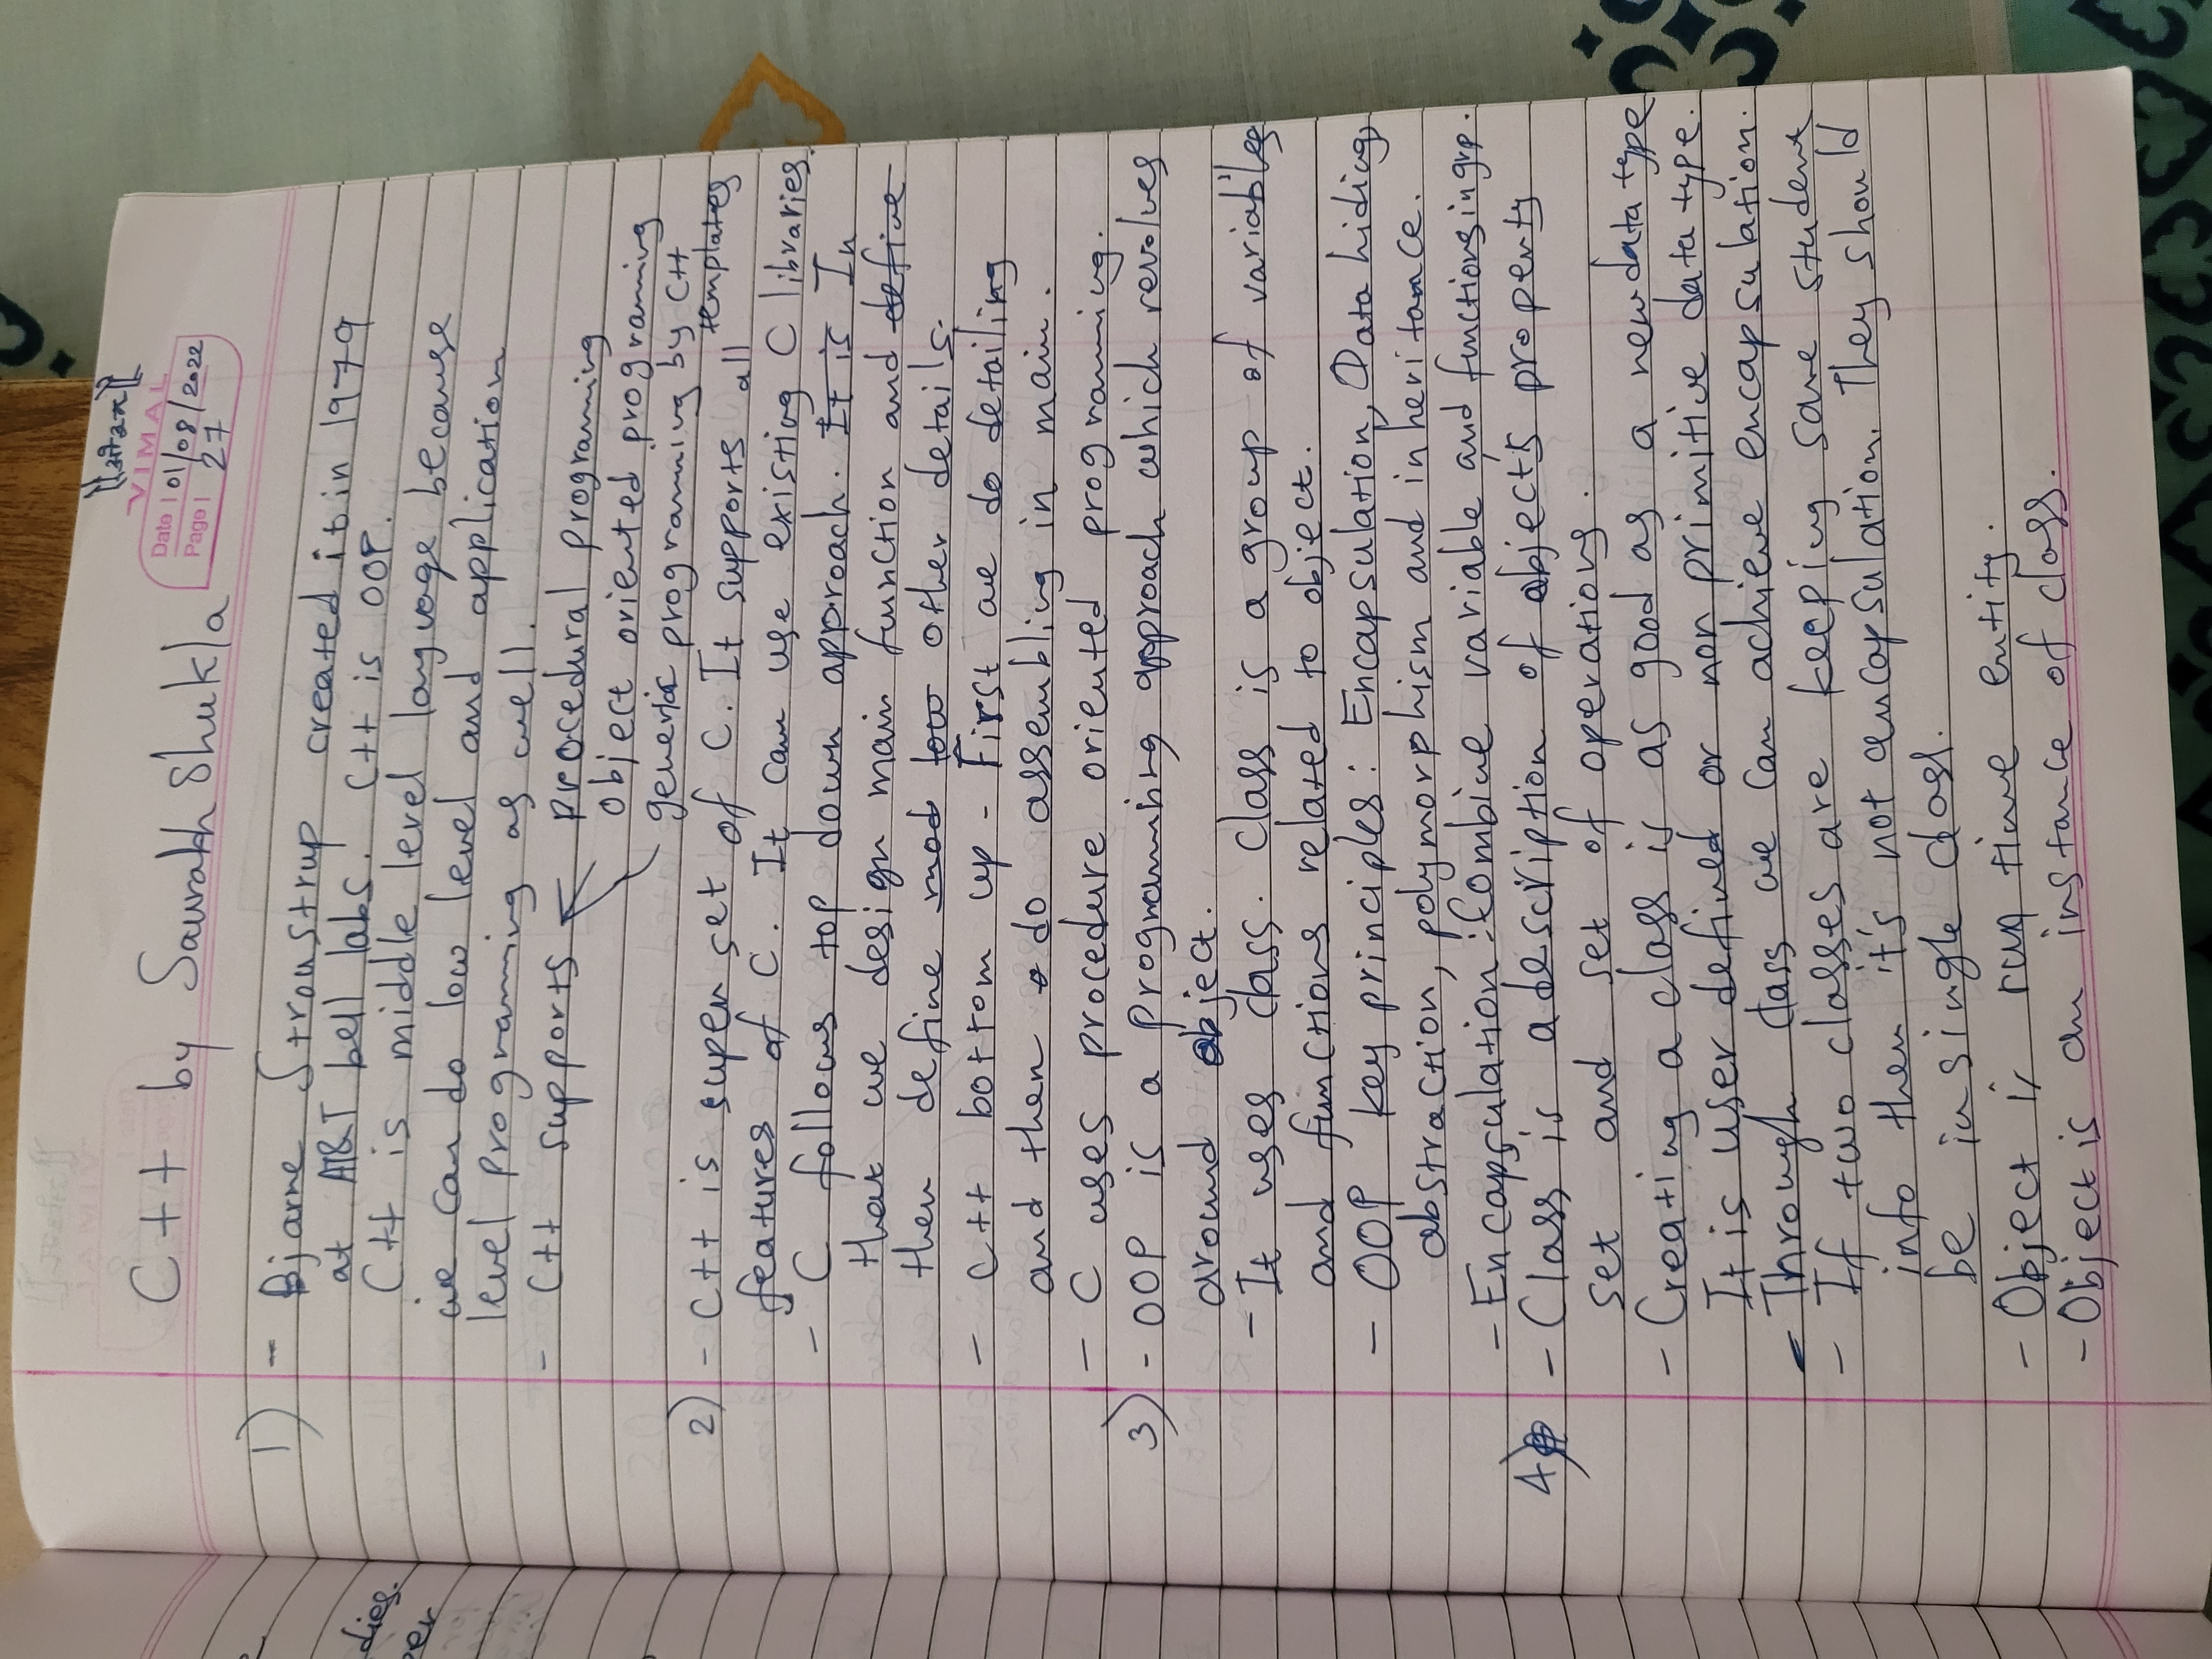 ॥ओ३म्॥
VIMAL
C++ by Saurabh Shukla
Date 01/08/2022
Page 27
1) - Bjarne Stroustrup created it in 1979
at AT&T bell labs. C++ is OOP.
C++ is middle level language because
we can do low level and application
level programing as well.
- C++ supports procedural programing
object oriented programing
generic programing by C++
templates
2) - C++ is super set of C. It supports all
features of C. It can use existing C libraries.
- C follows top down approach. It is In
that we design main function and define
then define mod low other details.
- C++ bottom up - First we do detailing
and then do assembling in main.
- C uses procedure oriented programing.
3) - OOP is a programming approach which revolves
around object.
- It uses class. Class is a group of variables
and functions related to object.
- OOP key principles: Encapsulation, Data hiding,
abstraction, polymorphism and inheritance.
- Encapsulation: Combine variable and functions in grp.
4) - Class is a description of object's property
set and set of operations.
- Creating a class is as good as a new data type
It is user defined or non primitive data type.
- Through class we can achieve encapsulation.
- If two classes are keeping same student
info then it's not encapsulation. They should
be in single class.
- Object is run time entity.
- Object is an instance of class.
dies.
er